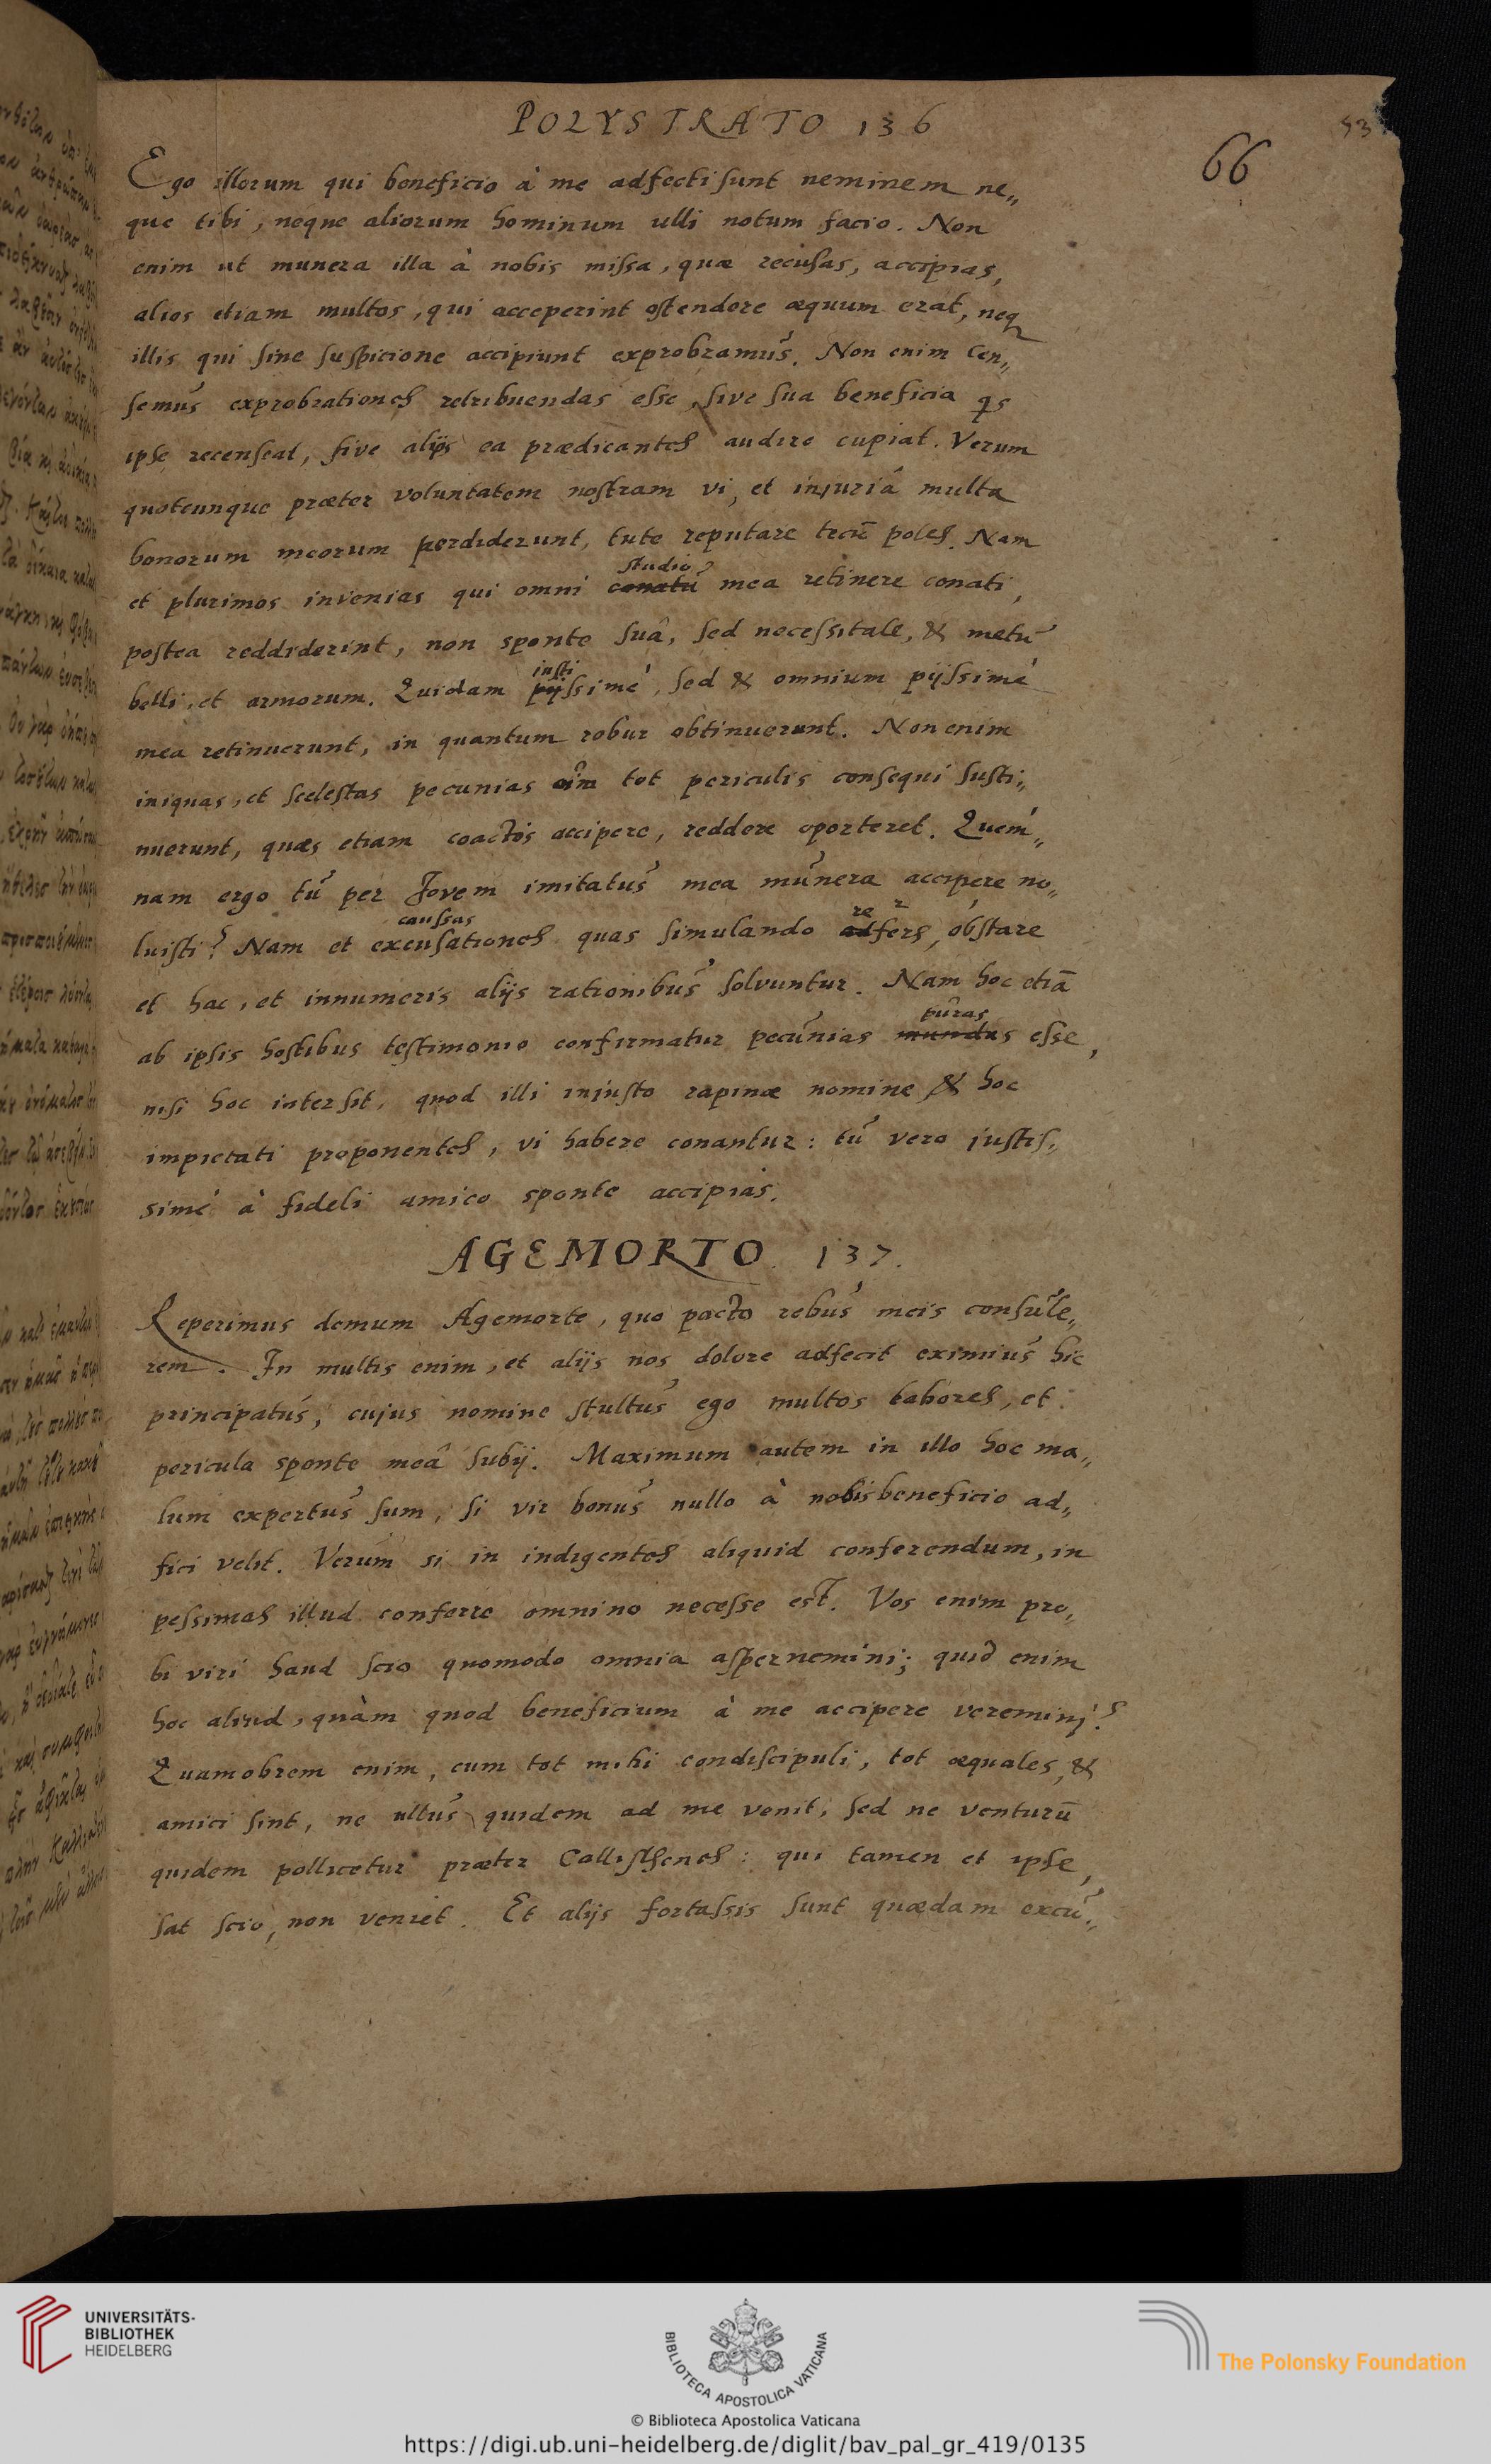 POLYSTRATO 136
53
66
Ego illorum qui beneficio à me adfecti sunt neminem ne„
que tibi, neque aliorum hominum ulli notum facio. Non
enim ut munera illa à nobis missa, quæ recusas, accipias,
alios etiam multos, qui acceperint ostendere æquum erat, neq
illis qui sine suspicione accipiunt exprobramus. Non enim cen„
semus exprobrationes retribuendas esse, sive sua beneficia qs
ipse recenseat, sive alijs ea prædicantes audire cupiat. Verum
quotcunque præter voluntatem nostram vi, et injuriâ multa
bonorum meorum perdiderunt, tute reputare tecū potes. Nam
studio
et plurimos invenias qui omni conatu mea retinere conati,
postea reddiderint, non sponte suâ, sed necessitate, & metu
iusti
belli, et armorum. Quidam pijssimé, sed & omnium pijssimé
mea retinuerunt, in quantum robur obtinuerunt. Non enim
iniquas, et scelestas pecunias tot periculis consequi susti„
nuerunt, quas etiam coactos accipere, reddere oporteret. Quem„
nam ergo tu per Jovem imitatus mea munera accipere no„
caussas re r
luisti? Nam et excusationes quas simulando adfers, obstare
et hac, et innumeris alijs rationibus solvuntur. Nam hoc etiā
puras
ab ipsis hostibus testimonio confirmatur pecunias mundas esse,
nisi hoc intersit, quod illi injusto rapinæ nomine & hoc
impietati proponentes, vi habere conantur: tu vero justis„
simé à fideli amico sponte accipias.
AGEMORTO. 137.
Reperimus demum Agemorte, quo pacto rebus meis consule„
rem. In multis enim, et alijs nos dolore adfecit eximius hic
principatus, cujus nomine stultus ego multos labores, et
pericula sponte meâ subij. Maximum autem in illo hoc ma„
lum expertus sum, si vir bonus nullo à nobis beneficio ad„
fici velit. Verum si in indigentes aliquid conferendum, in
pessimas illud conferre omnino necesse est. Vos enim pro„
bi viri haud scio quomodo omnia aspernemini; quid enim
hoc aliud, quàm quod beneficium à me accipere veremini?
Quamobrem enim, cum tot mihi condiscipuli, tot æquales, &
amici sint, ne ullus quidem ad me venit, sed ne venturū
quidem pollicetur præter Callisthenes: qui tamen et ipse,
sat scio, non veniet. Et alijs fortassis sunt quædam excu„
UNIVERSITÄTS-
BIBLIOTHEK
HEIDELBERG
BIBLIOTECA APOSTOLICA VATICANA
The Polonsky Foundation
© Biblioteca Apostolica Vaticana
https://digi.ub.uni-heidelberg.de/diglit/bav_pal_gr_419/0135